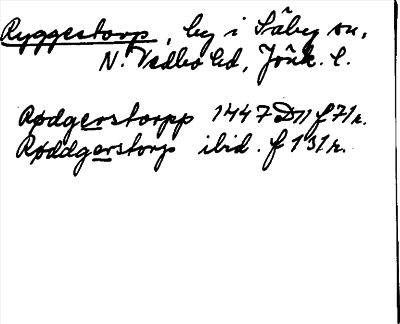 Ryggestorp, by i Säby sn,
N. Vedbo hd, Jönk. l.
Rødgerstorpp 1447 D11 f 71r.
Røddgerstorp ibid. f 131r.